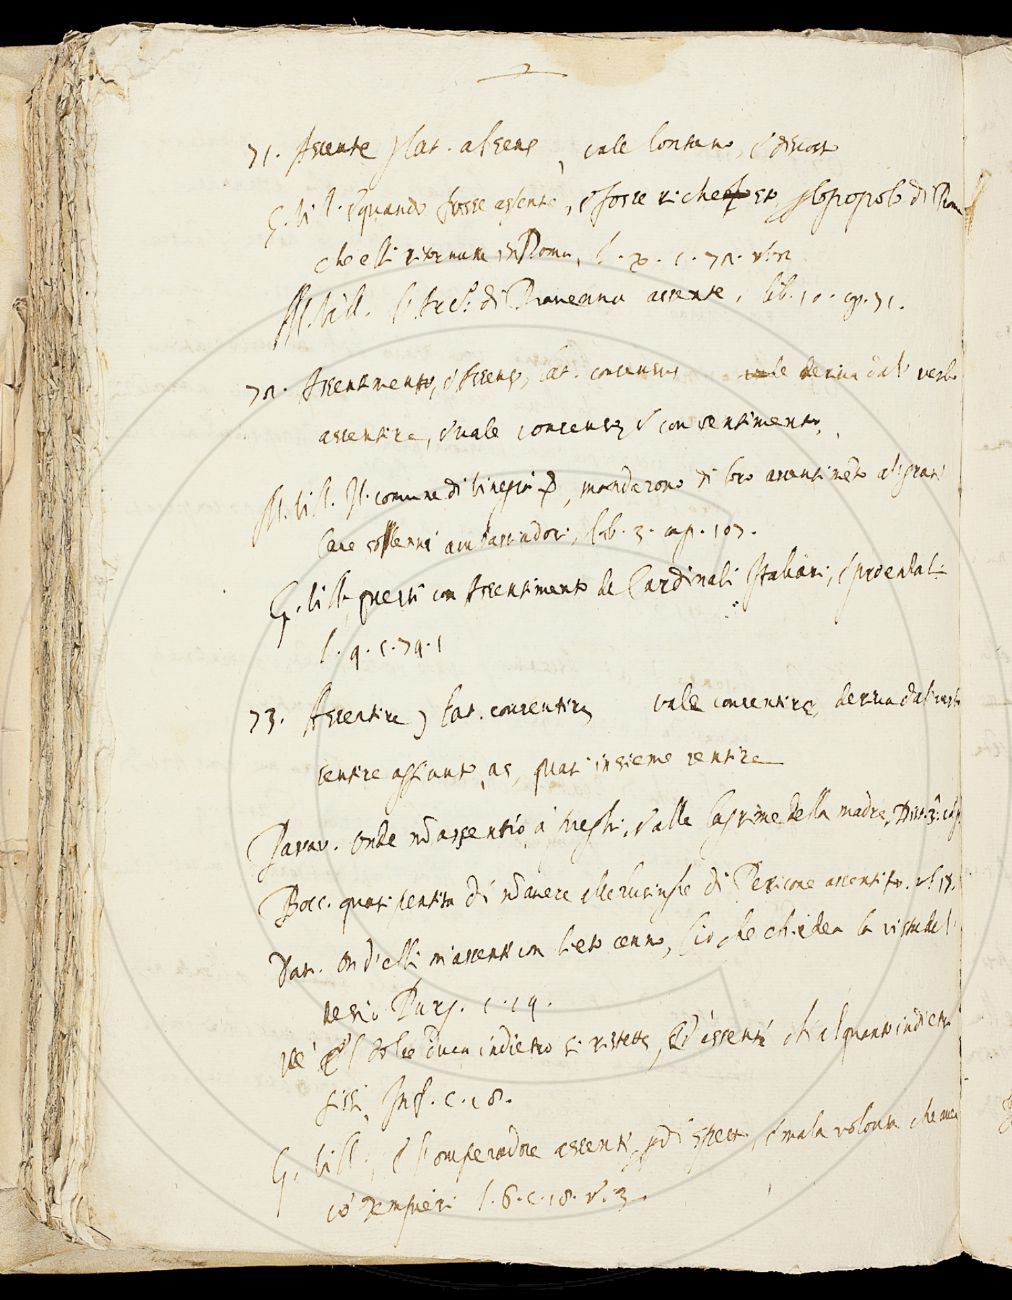 71. Assente, lat. absens, vale lontano, e discosto
G. Vill. e quando fosse assente, e fosse richesto pel popolo di Roma
che elli ritornare in Roma, l. x. c. 72.
M. Vill. l'Arcivo. di Ravenna assente, lib. 10. cap. 71.
72. Assentimento, e assenso, lat. consensus vale deriva dal verbo
assentire, e vale consenso e consentimento,
M. Vill. Il comune di Vinegia, mandarono di loro assentimento al gran
Cane solenni ambasciadori, lib. 3. cap. 107.
G. Vill. questi con Assentimento de Cardinali Italiani, e provenzali
l. 9. c. 79. 1
73. Assentire, lat. consentire vale consentire, deriva dal verbo
sentire aggiunto as, quasi insieme sentire
Passav. Onde non assentío a' prieghi, e alle lagrime della madre, Dist. 3. cap.
Bocc. quasi pentita di non avere alle lusinghe di Pericone assentito.
Dan. Ond' elli m'assentì con lieto cenno, Ciò che chiedea la vista del
desio Purg. c. 19.
e 'l dolce duca indietro si ristette, Ed assentì ch' alquanto indietro
gissi, Inf. c. 18.
G. Vill., e l'omperadore assentì, per dispetto e mala volontà che avea
co' Tempieri l. 6. c. 18. v. 3.